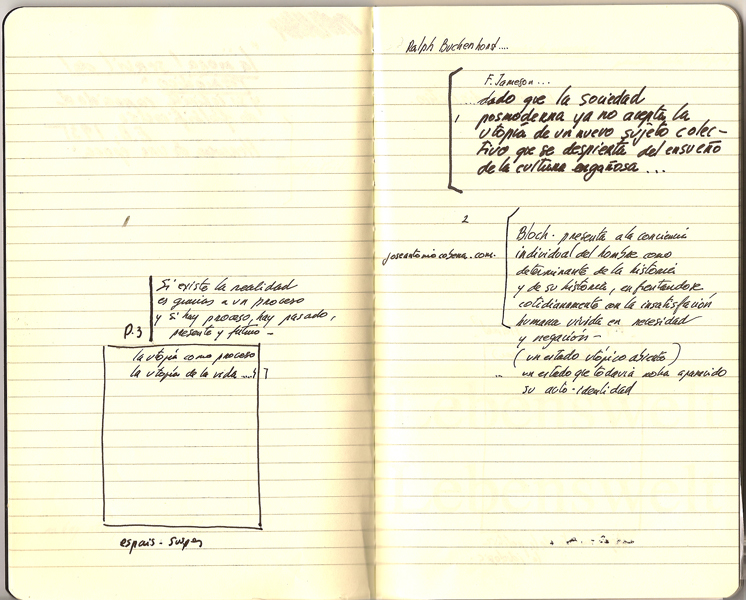 Si existe la realidad
es gracias a un proceso
y si hay proceso, hay pasado,
presente y futuro -
P.3
la utopía como proceso
la utopía de la vida ....
espais -
Ralph Buchenhorst....
F. Jameson ...
...dado que la sociedad
posmoderna ya no acepta la
utopía de un nuevo sujeto colec-
tivo que se despierta del ensueño
de la cultura engañosa ...
2
joseantoniocobena.com.
Bloch - presenta a la conciencia
individual del hombre como
determinante de la historia
y de su historia, enfrentándose
cotidianamente con la insatisfacción
humana vivida en necesidad
y negación -
(un estado utópico abierto)
... un estado que todavía no ha aparecido
su auto-identidad